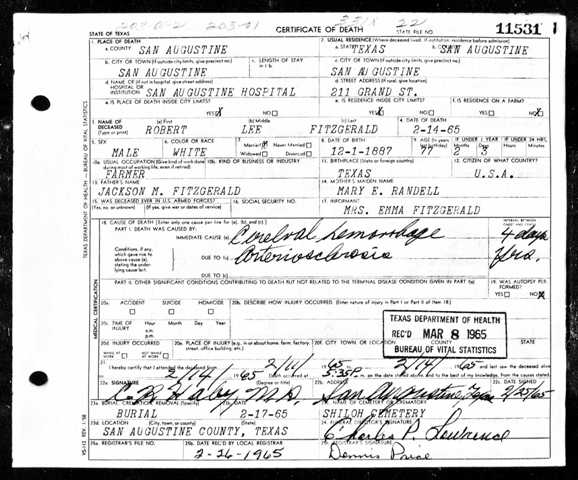 203-0-2 203-01 331X 22
STATE OF TEXAS CERTIFICATE OF DEATH STATE FILE NO. 11531
1. PLACE OF DEATH 2. USUAL RESIDENCE (Where deceased lived. If institution: residence before admission)
a. COUNTY SAN AUGUSTINE a. STATE TEXAS b. COUNTY SAN AUGUSTINE
b. CITY OR TOWN (If outside city limits, give precinct no.) c. LENGTH OF STAY in 1 b. c. CITY OR TOWN (If outside city limits, give precinct no.)
SAN AUGUSTINE SAN AUGUSTINE
d. NAME OF (If not in hospital, give street address) HOSPITAL OR INSTITUTION SAN AUGUSTINE HOSPITAL d. STREET ADDRESS (If rural, give location) 211 GRAND ST.
e. IS PLACE OF DEATH INSIDE CITY LIMITS? e. IS RESIDENCE INSIDE CITY LIMITS? f. IS RESIDENCE ON A FARM?
YES X NO YES X NO YES NO X
3. NAME OF DECEASED (Type or print) (a) First (b) Middle (c) Last 4. DATE OF DEATH
ROBERT LEE FITZGERALD 2-14-65
5. SEX 6. COLOR OR RACE Married Never Married Widowed Divorced 8. DATE OF BIRTH 9. AGE (In years last birthday) IF UNDER 1 YEAR IF UNDER 24 HRS.
MALE WHITE 12-1-1887 77
10a. USUAL OCCUPATION (Give kind of work done during most of working life, even if retired) 10b. KIND OF BUSINESS OR INDUSTRY 11. BIRTHPLACE (State or foreign country) 12. CITIZEN OF WHAT COUNTRY?
FARMER TEXAS U.S.A.
13. FATHER'S NAME 14. MOTHER'S MAIDEN NAME
JACKSON M. FITZGERALD MARY E. RANDELL
15. WAS DECEASED EVER IN U.S. ARMED FORCES? (Yes, no, or unknown) (If yes, give war or dates of service) 16. SOCIAL SECURITY NO. 17. INFORMANT
MRS. EMMA FITZGERALD
18. CAUSE OF DEATH (Enter only one cause per line for (a), (b), and (c).) INTERVAL BETWEEN ONSET AND DEATH
PART I. DEATH WAS CAUSED BY:
IMMEDIATE CAUSE (a) Cerebral hemorrhage 4 days
Conditions, if any, which gave rise to above cause (a), stating the underlying cause last.
DUE TO (b) Arteriosclerosis Yrs.
DUE TO (c)
PART II. OTHER SIGNIFICANT CONDITIONS CONTRIBUTING TO DEATH BUT NOT RELATED TO THE TERMINAL DISEASE CONDITION GIVEN IN PART I(a) 19. WAS AUTOPSY PERFORMED?
YES NO X
20a. ACCIDENT SUICIDE HOMICIDE 20b. DESCRIBE HOW INJURY OCCURRED. (Enter nature of injury in Part I or Part II of item 18.)
20c. TIME OF INJURY Hour Month Day Year
a.m.
p.m.
TEXAS DEPARTMENT OF HEALTH
REC'D MAR 8 1965
BUREAU OF VITAL STATISTICS
20d. INJURY OCCURRED WHILE AT WORK NOT WHILE AT WORK 20e. PLACE OF INJURY (e.g. in or about home, farm, factory, street, office building, etc.) 20f. CITY, TOWN, OR LOCATION COUNTY STATE
21. I hereby certify that I attended the deceased from 2/11 65 2/14 65 and last saw the deceased alive
on 2/14 65 Death occurred at 5:35P. m. on the date stated above, and to the best of my knowledge, from the causes stated.
22a. SIGNATURE (Degree or title) 22b. ADDRESS 22c. DATE SIGNED
C. R. Haley M.D. San Augustine Texas 2/25/65
23a. BURIAL, CREMATION, REMOVAL (Specify) 23b. DATE 23c. NAME OF CEMETERY OR CREMATORY
BURIAL 2-17-65 SHILOH CEMETERY
23d. LOCATION (City, town, or county) (State) 24. FUNERAL DIRECTOR'S SIGNATURE
SAN AUGUSTINE COUNTY, TEXAS Charles P. Lawrence
25a. REGISTRAR'S FILE NO. 25b. DATE REC'D BY LOCAL REGISTRAR 25c. REGISTRAR'S SIGNATURE
2-26-1965 Dennis Price
TEXAS DEPARTMENT OF HEALTH — BUREAU OF VITAL STATISTICS
MEDICAL CERTIFICATION